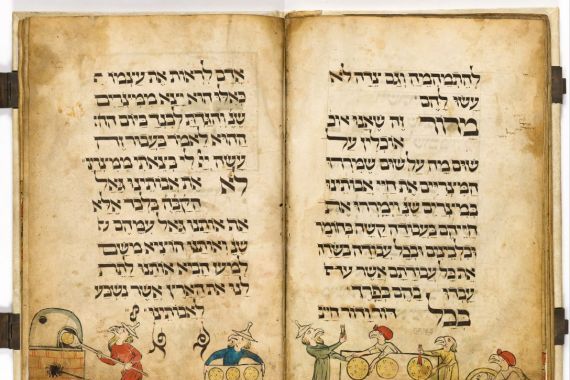 להתמהמה וגם צדה לא
עשו להם
מרור זה שאנו
אוכלין על
שום מה על שום שמררו
המצריים את חיי אבותינו
במצרים שנ וימררו את
חייהם בעבודה קשה בחומר
ובלבנים ובכל עבודה בשדה
את כל עבודתם אשר עבדו
בהם בפרך
בכל דור ודור
אדם לראות את עצמו
כאלו הוא יצא ממצרים
שנ והגדת לבנך ביום
ההוא לאמר בעבור זה
עשה לי בצאתי ממצרים
לא את אבותינו גאל
הקבה בלבד אלא
אף אותנו גאל עמהם
שנ ואותנו הוציא משם
למען הביא אותנו לתת
לנו את הארץ אשר נשבע
לאבותינו